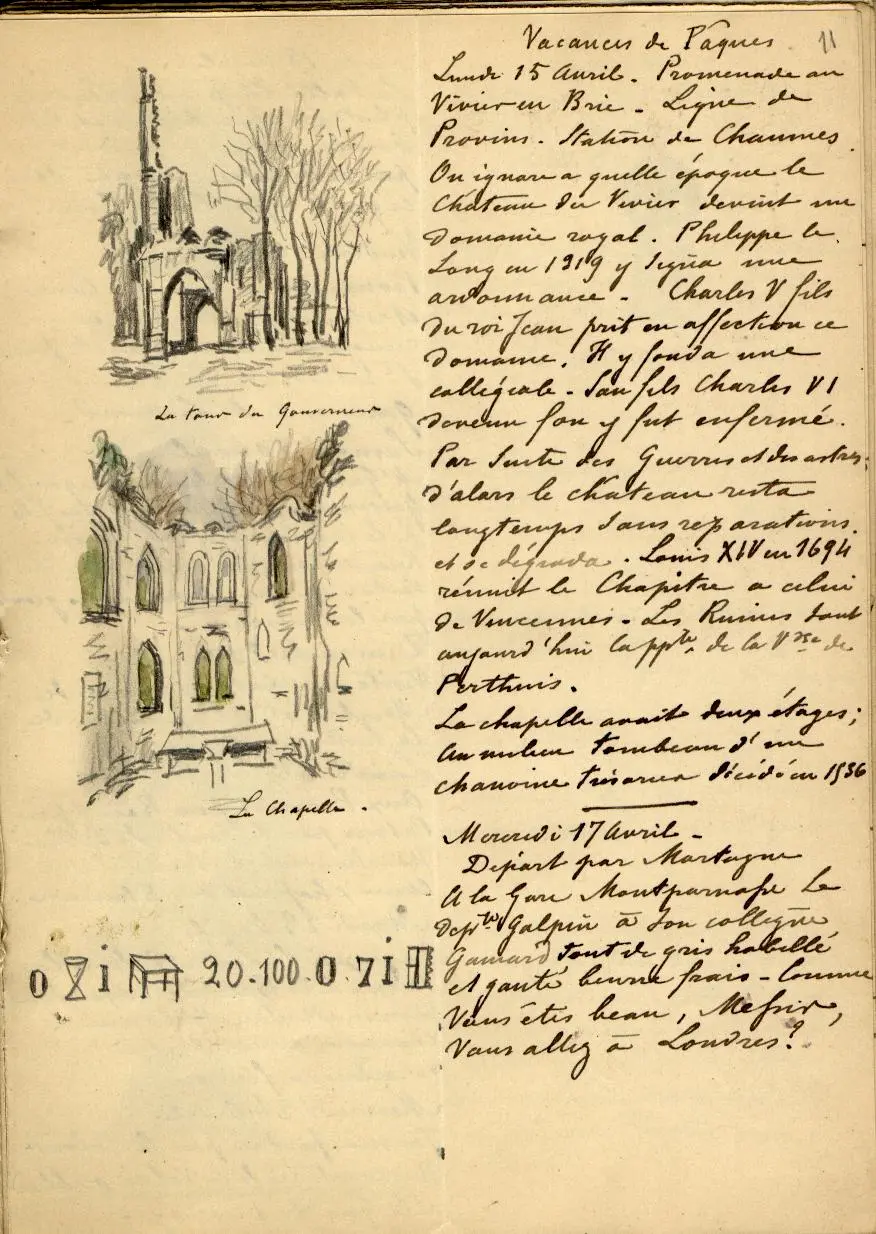 Vacances de Pâques. 11
Lundi 15 Avril. Promenade au
Vivier en Brie - Ligne de
Provins. Station de Chaumes
On ignore a quelle époque le
Château du Vivier devint un
domaine royal. Philippe le
Long en 1319 y signa une
ordonnance. Charles V fils
du roi Jean prit en affection ce
domaine. Il y fonda une
collégiale. Son fils Charles VI
devenu fou y fut enfermé.
Par suite des Guerres et desastres
d'alors le château resta
longtemps sans réparations.
et se dégrada. Louis XIV en 1694
réunit le Chapitre a celui
de Vincennes. Les Ruines sont
aujourd'hui la ppté. de la Vsse de
Perthuis.
La chapelle avait deux étages;
Au milieu tombeau d'un
chanoine trésorier décédé en 1536
La tour du Gouverneur
La Chapelle.
Mercredi 17 Avril -
Départ par Mortagne
A la Gare Montparnasse Le
Galpin à son collègue
Gamard tout de gris habillé
et ganté beurre frais - Comme
Vous êtes beau,
Vous allez à Londres?
O i 20.100 O 7 i